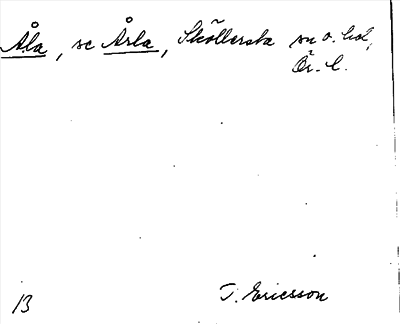 Åla, se Årla, Sköllersta sn o. hd,
Ör. l.
13
T. Ericsson